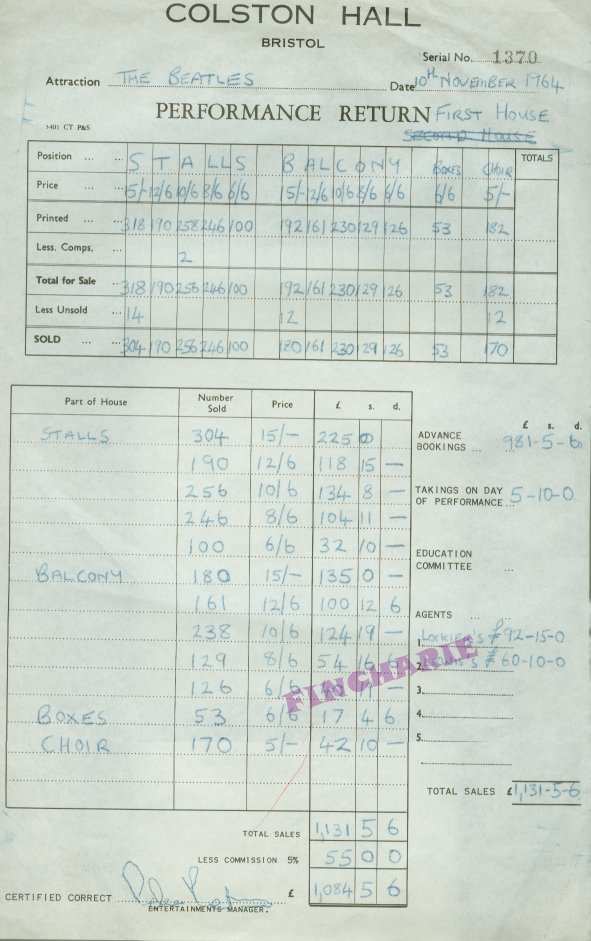 COLSTON HALL
BRISTOL
Serial No. 1370
Attraction THE BEATLES Date 10th NOVEMBER 1964
PERFORMANCE RETURN FIRST HOUSE
SECOND HOUSE
3401 CT P&S
Position ... STALLS BALCONY BOXES CHOIR TOTALS
Price ... 15/- 12/6 10/6 8/6 6/6 15/- 12/6 10/6 8/6 6/6 6/6 5/-
Printed ... 318 190 258 246 100 192 161 230 129 126 53 182
Less. Comps. ... 2
Total for Sale ... 318 190 256 246 100 192 161 230 129 126 53 182
Less Unsold ... 14 12 12
SOLD ... 304 190 256 246 100 180 161 230 129 126 53 170
Part of House Number Sold Price £ s. d.
STALLS 304 15/- 225 0
190 12/6 118 15 —
256 10/6 134 8 —
246 8/6 104 11 —
100 6/6 32 10 —
BALCONY 180 15/- 135 0 —
161 12/6 100 12 6
238 10/6 124 19 —
129 8/6 54 16
126 6/6 —
BOXES 53 6/6 17 4 6
CHOIR 170 5/- 42 10 —
FINCHARIE
TOTAL SALES 1,131 5 6
LESS COMMISSION 5% 55 0 0
£ 1,084 5 6
CERTIFIED CORRECT
ENTERTAINMENTS MANAGER.
£ s. d.
ADVANCE BOOKINGS ... 981-5-6
TAKINGS ON DAY OF PERFORMANCE ... 5-10-0
EDUCATION COMMITTEE ...
AGENTS ...
1. LOCKIER'S £92-15-0
2. £60-10-0
3.
4.
5.
TOTAL SALES £1,131-5-6